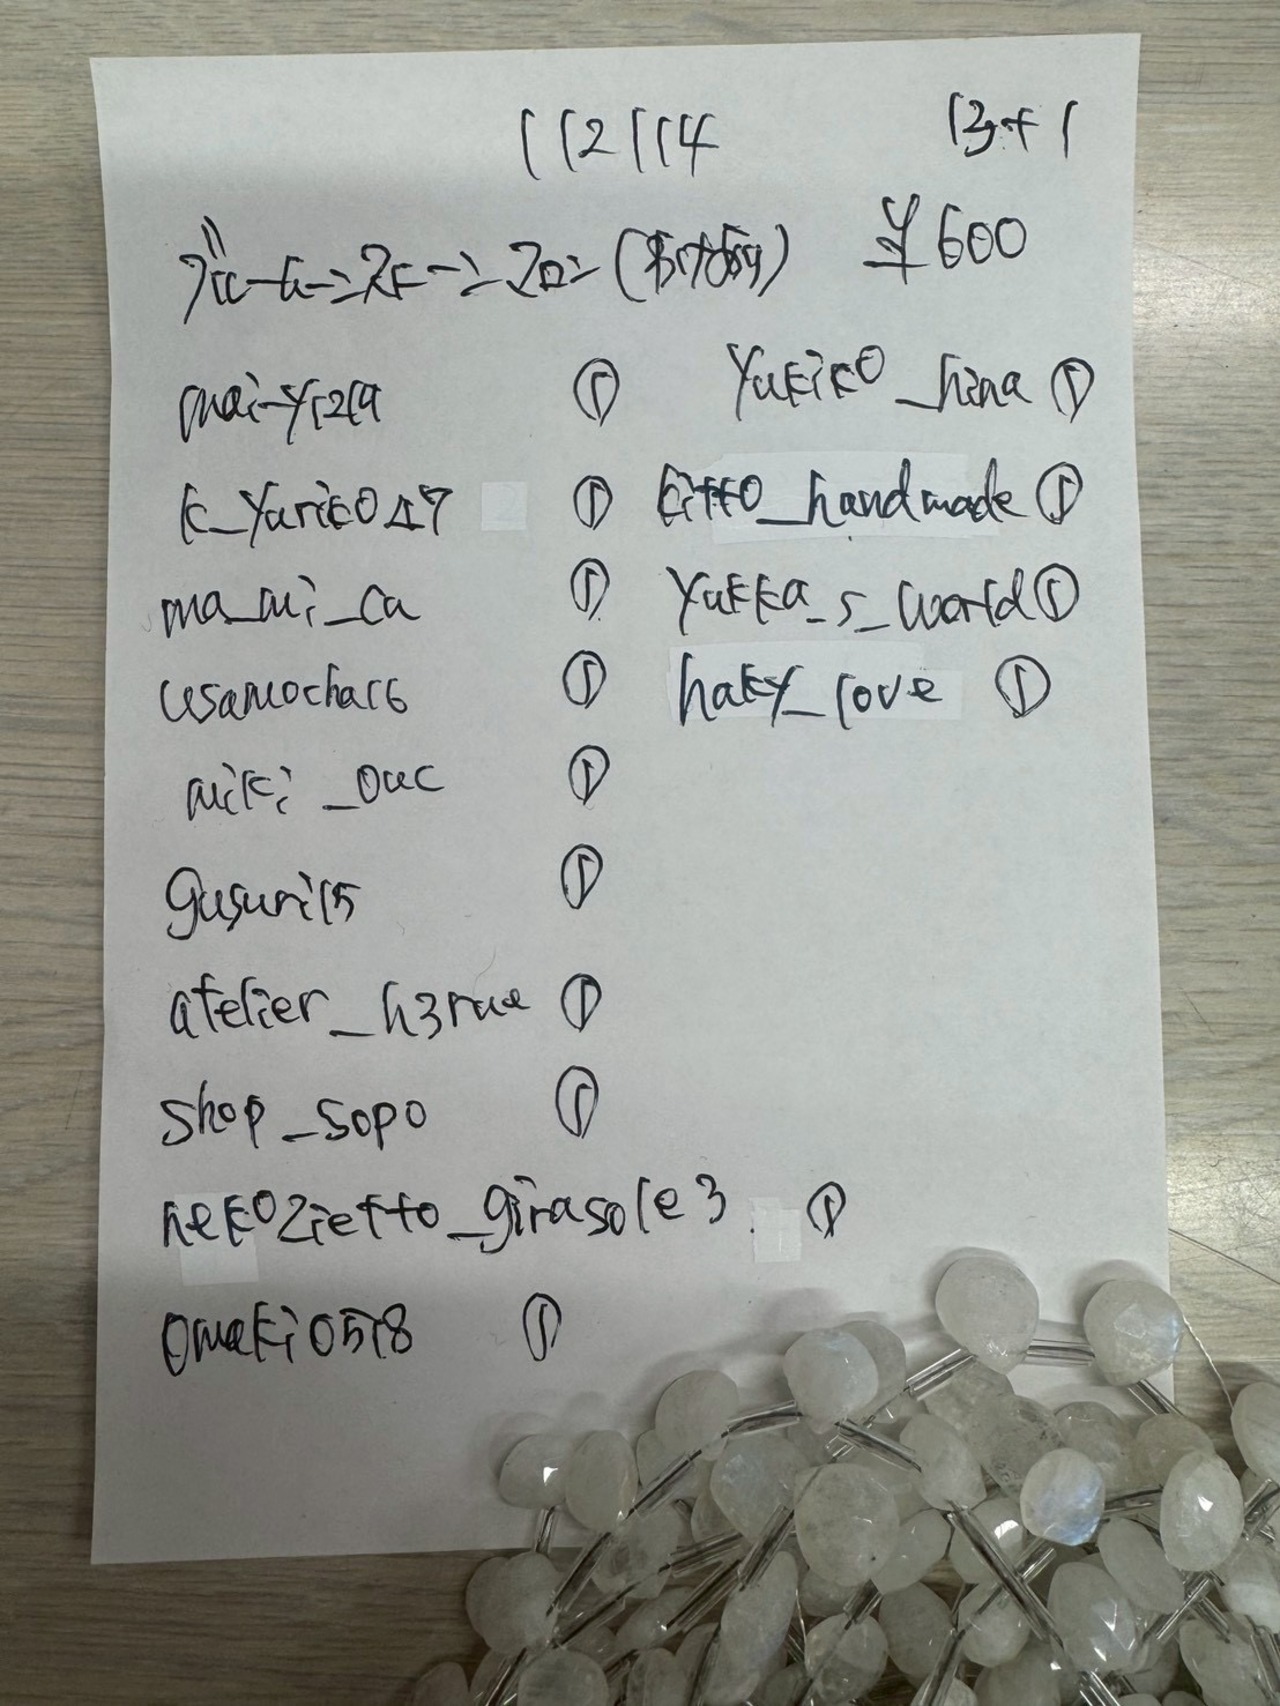 112114 13+1
ブルームーンストーンマロン ¥600
mai-yi219 ①
k_yuriko47 ①
ma_mi_ca ①
usamocha16 ①
miki_ouc ①
gusuri15 ①
atelier_h3rue ①
shop_sopo ①
nekozietto_girasole3 ①
omaki0518 ①
yukiko_hina ①
kitto_handmade ①
yukka_s_world ①
haky_love ①